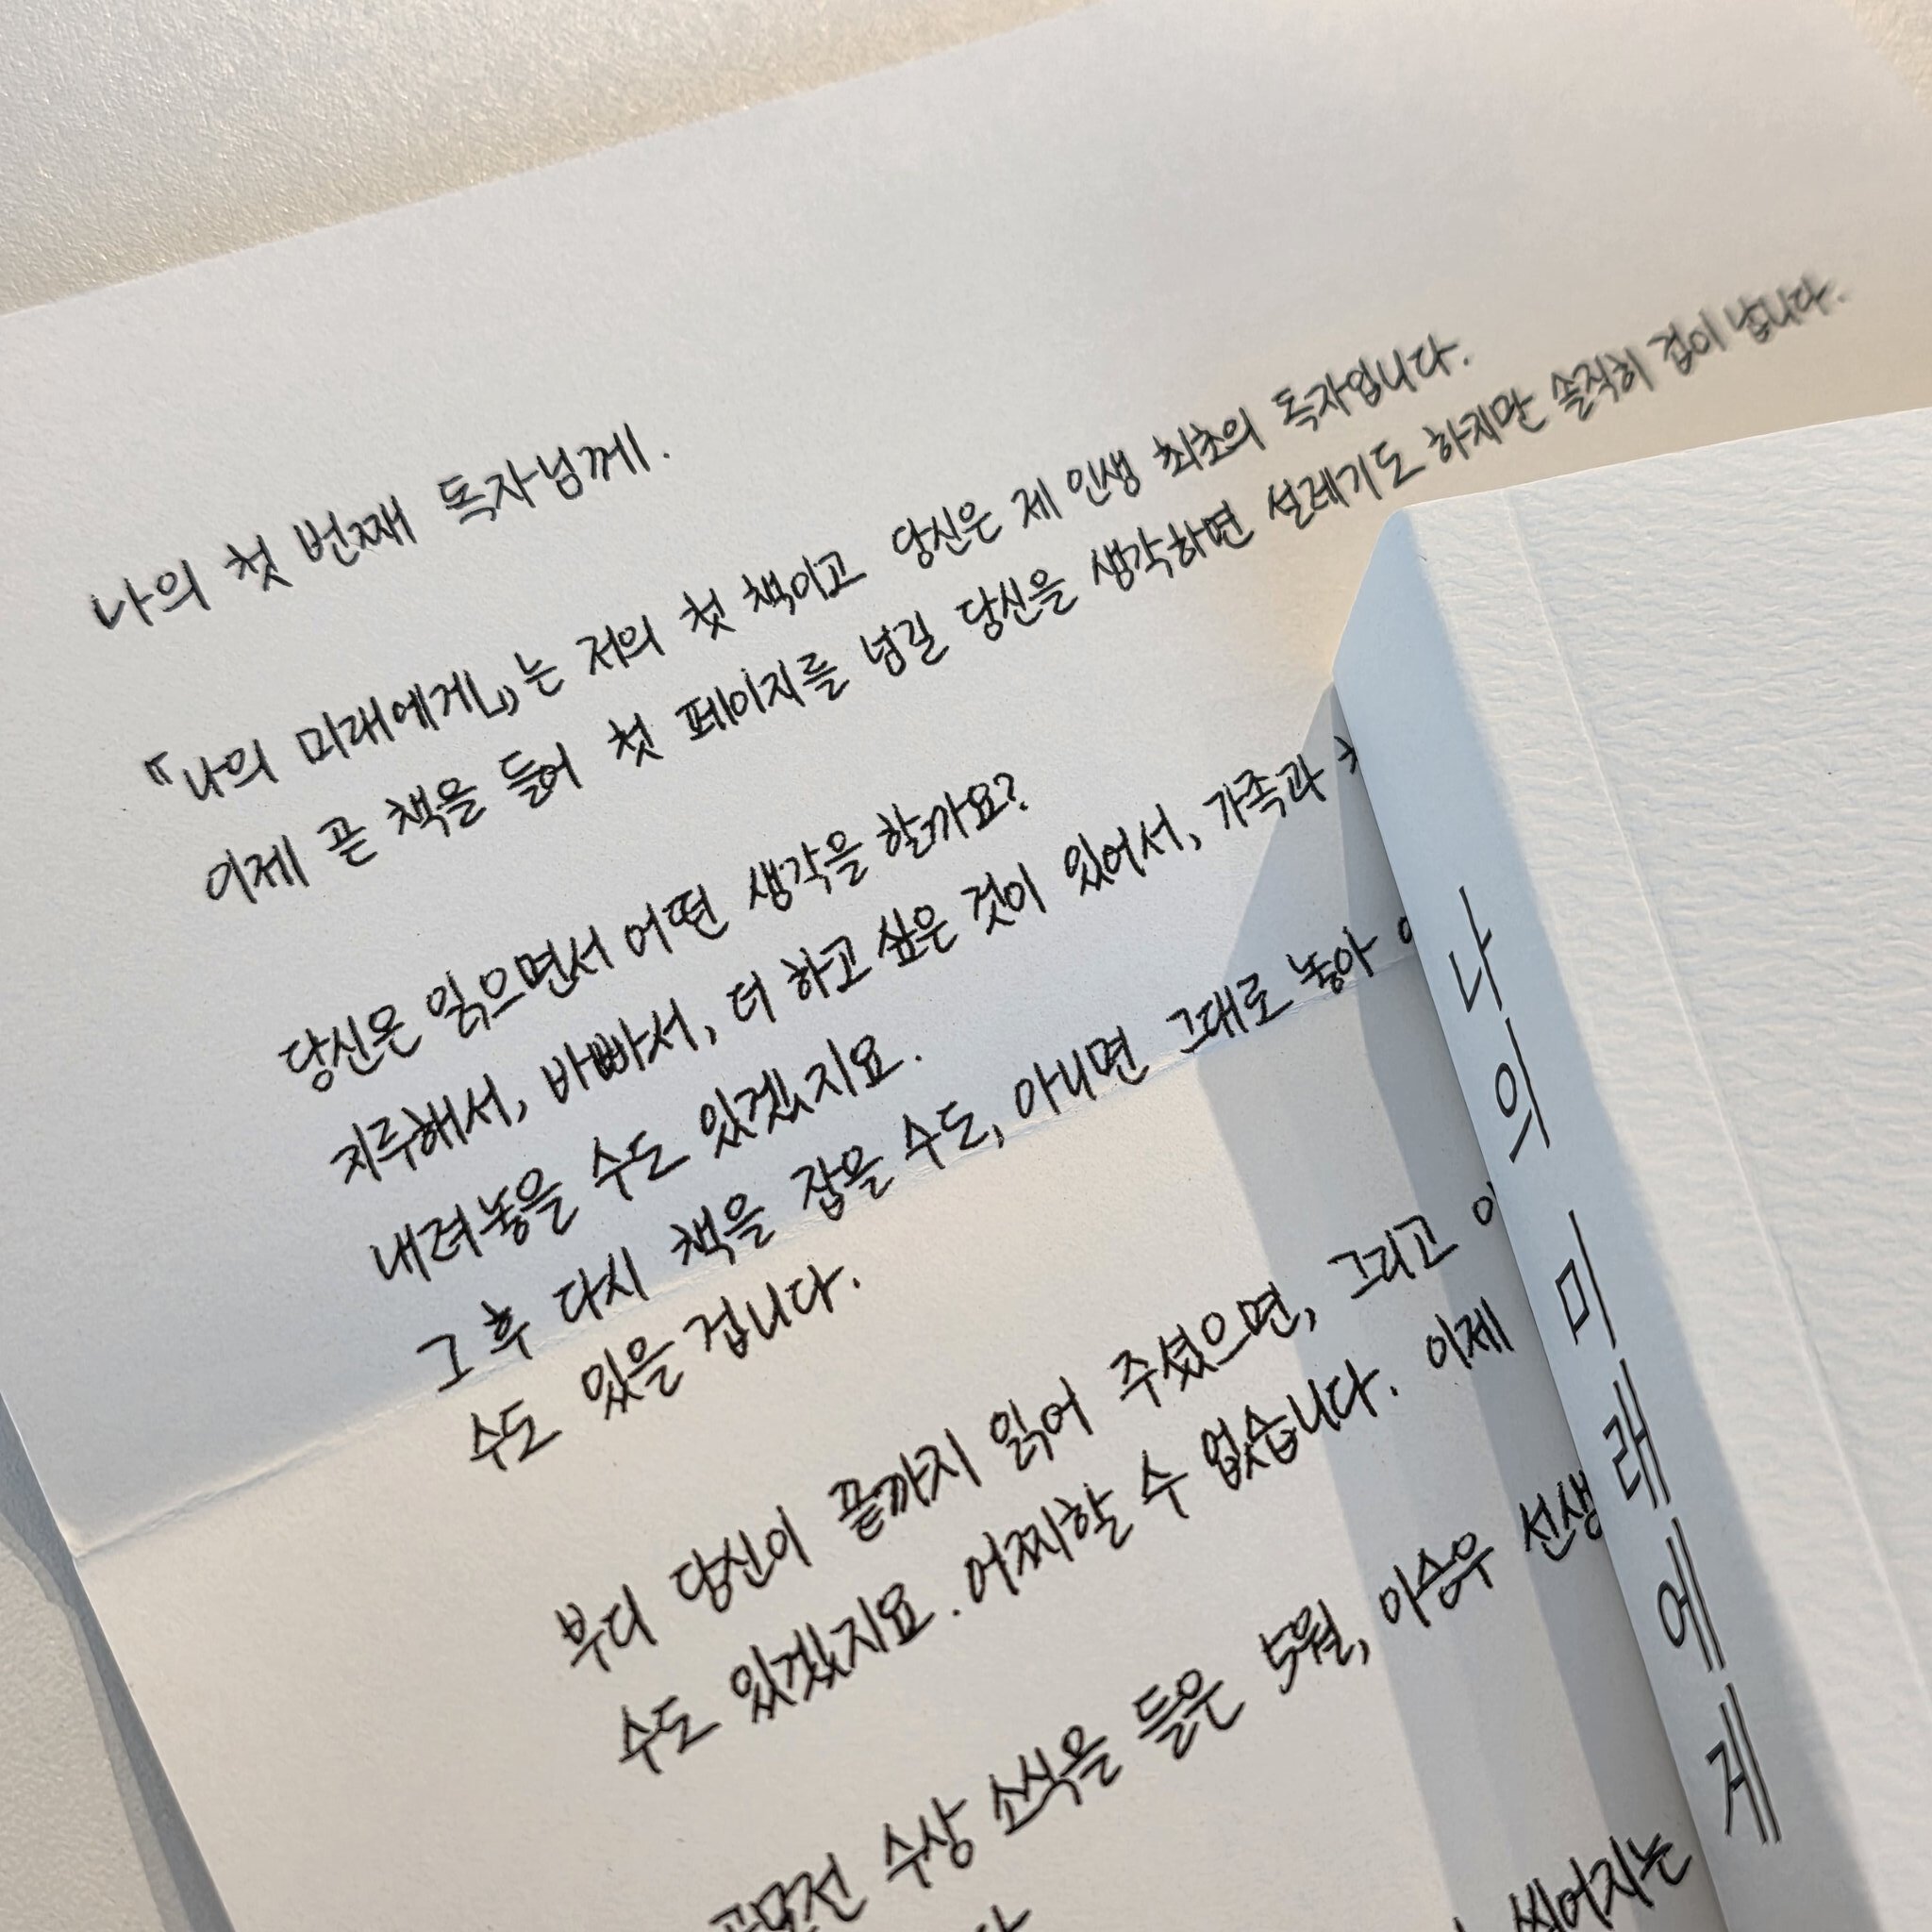 나의 첫 번째 독자님께.
『나의 미래에게』는 저의 첫 책이고 당신은 제 인생 최초의 독자입니다.
이제 곧 책을 들어 첫 페이지를 넘길 당신을 생각하면 설레기도 하지만 솔직히 겁이 납니다.
당신은 읽으면서 어떤 생각을 할까요?
지루해서, 바빠서, 더 하고 싶은 것이 있어서, 가족과
내려놓을 수도 있겠지요.
그 후 다시 책을 잡을 수도, 아니면 그대로 놓아
수도 있을 겁니다.
부디 당신이 끝까지 읽어 주셨으면, 그리고
수도 있겠지요. 어찌할 수 없습니다. 이제
공모전 수상 소식을 들은 5월, 이승우 선생
써지는
나의 미래에게